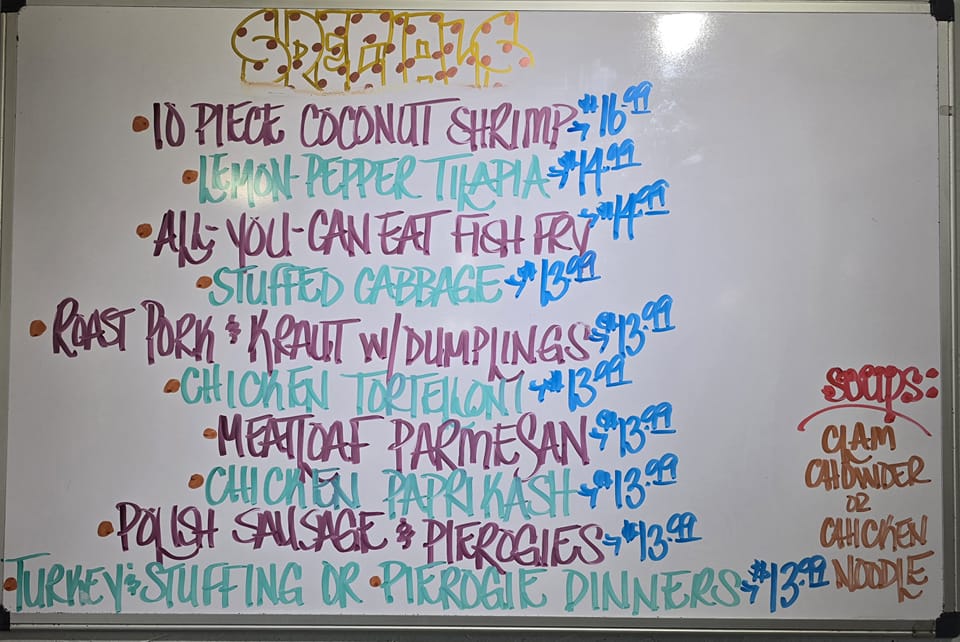 SPECIALS
• 10 PIECE COCONUT SHRIMP → $16.99
• LEMON-PEPPER TILAPIA → $14.99
• ALL-YOU-CAN EAT FISH FRY → $14.99
• STUFFED CABBAGE → $13.99
• ROAST PORK & KRAUT W/DUMPLINGS → $13.99
• CHICKEN TORTELLONI → $13.99
• MEATLOAF PARMESAN → $13.99
• CHICKEN PAPRIKASH → $13.99
• POLISH SAUSAGE & PIEROGIES → $13.99
• TURKEY & STUFFING OR • PIEROGIE DINNERS → $13.99
SOUPS:
CLAM
CHOWDER
OR
CHICKEN
NOODLE